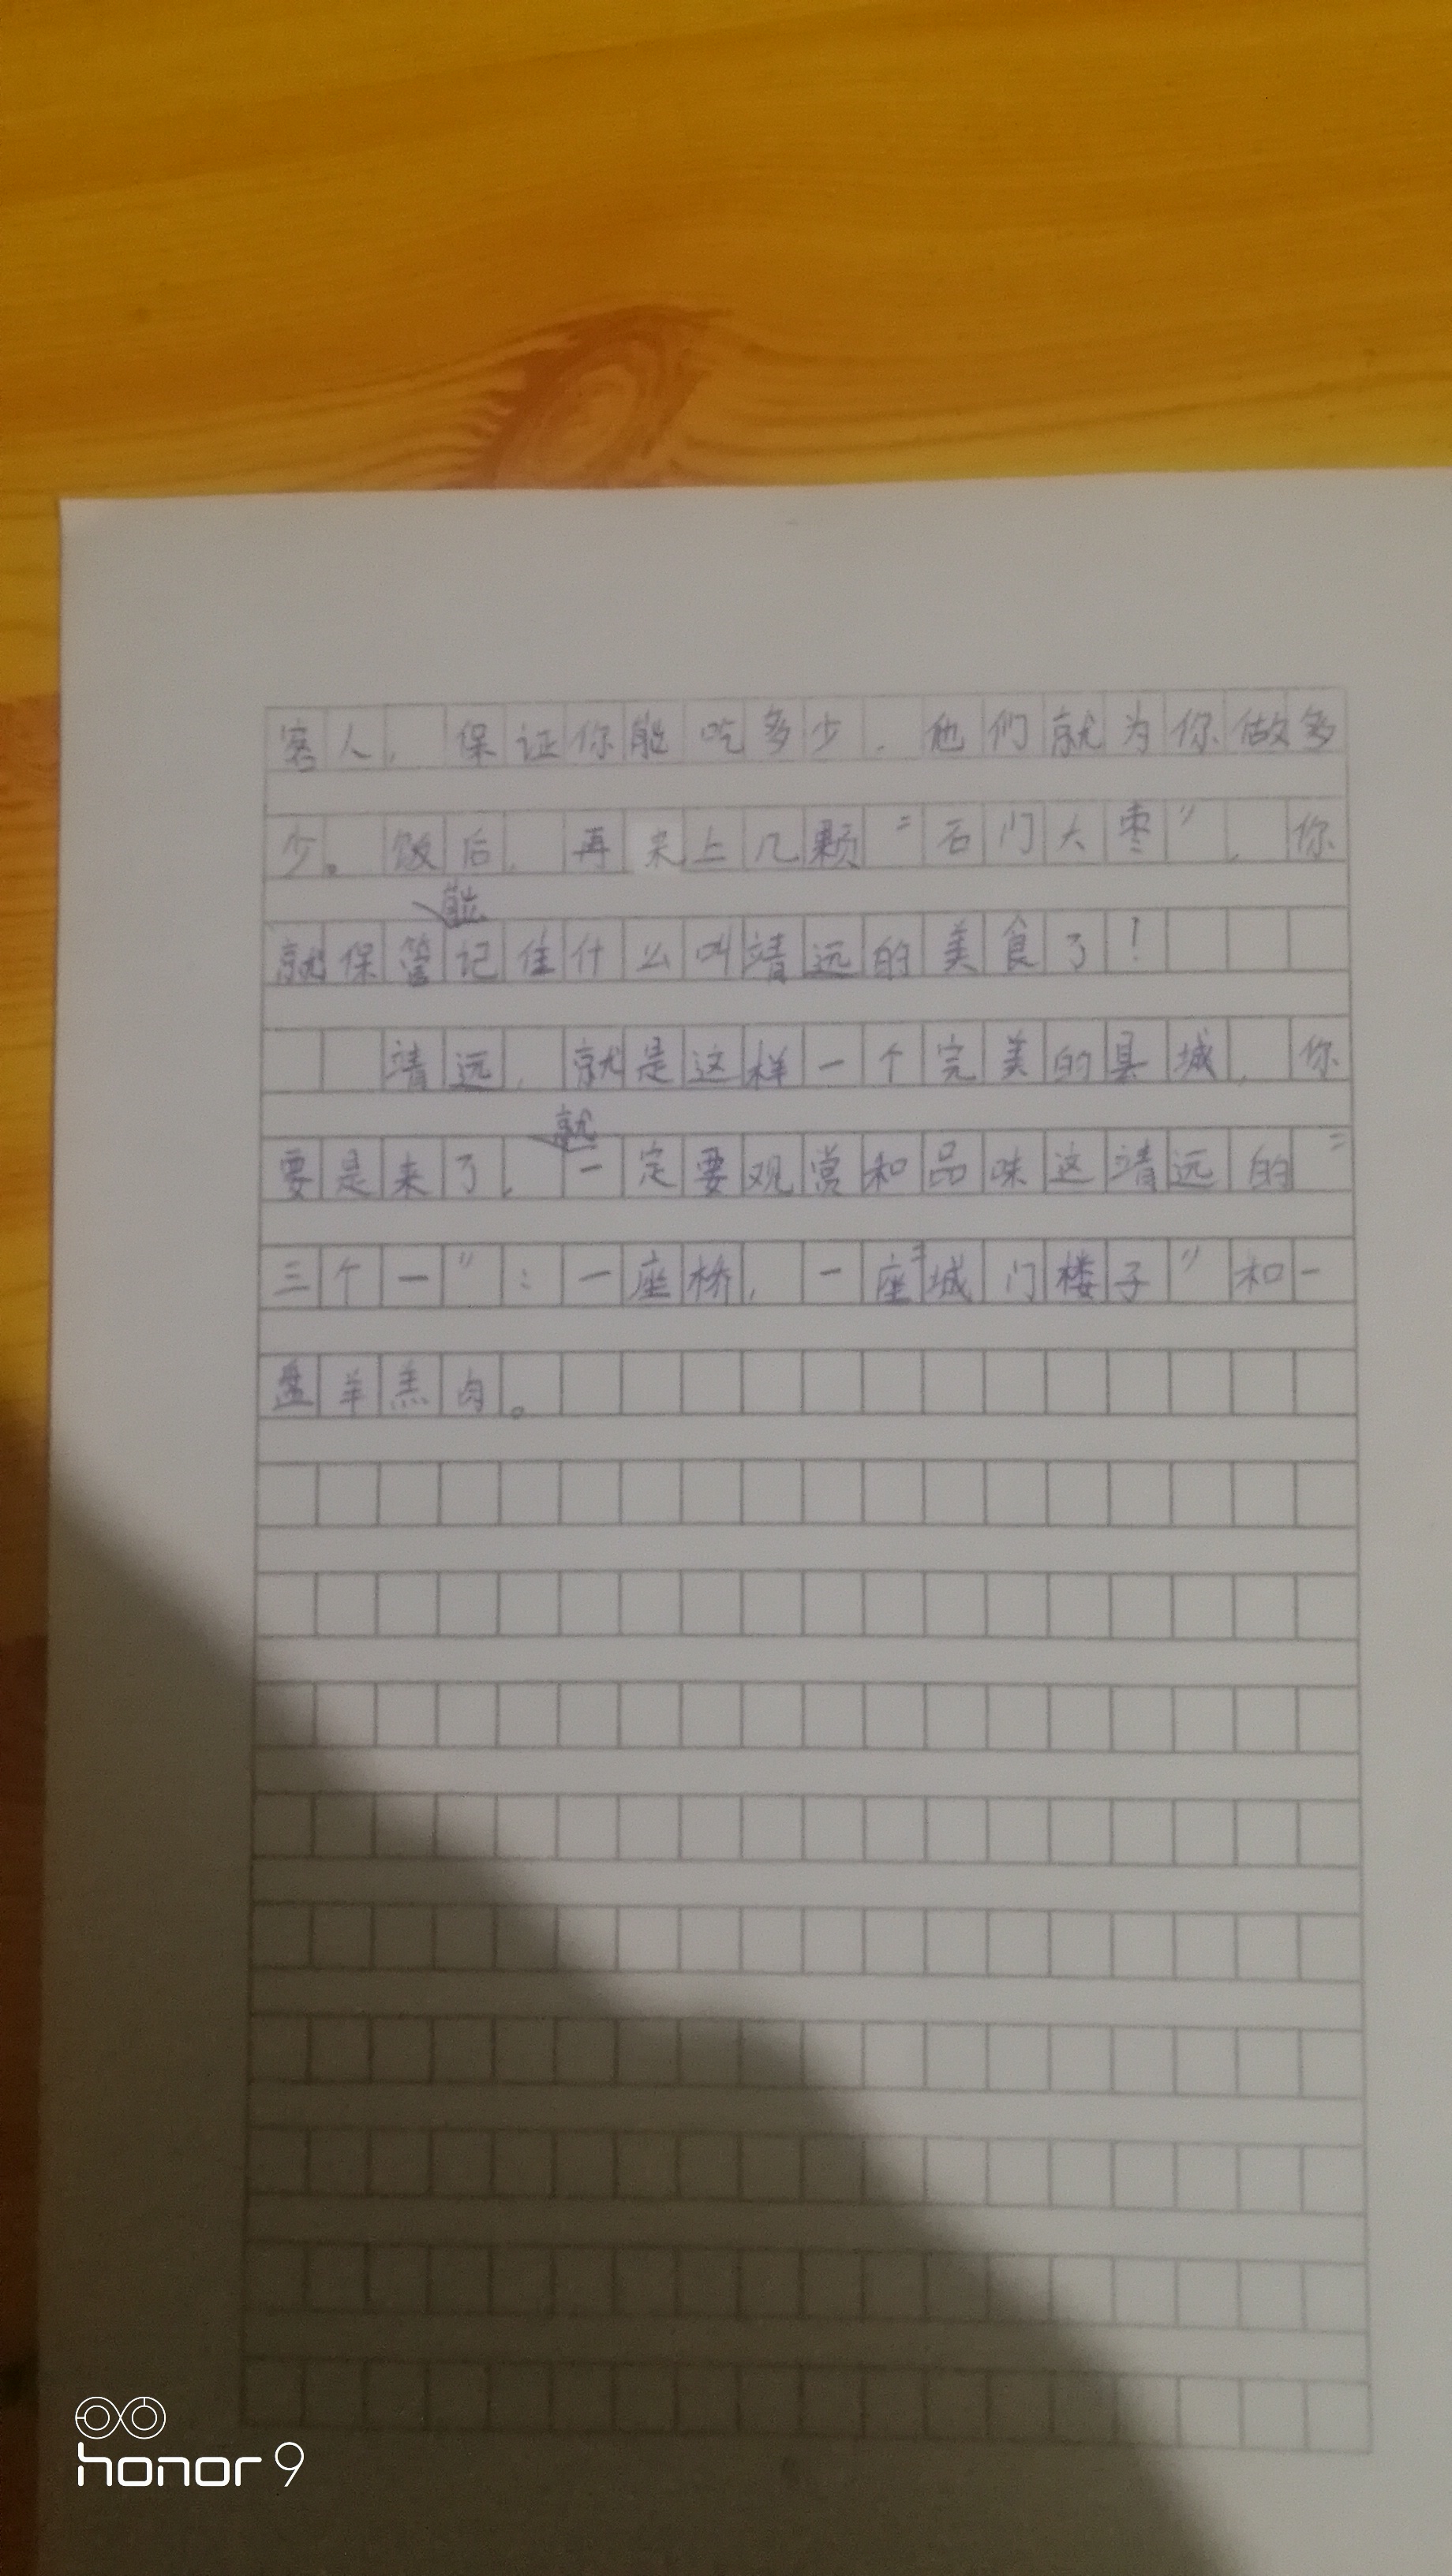 客人，保证你能吃多少，他们就为你做多
少。饭后，再来上几颗“石门大枣”，你
就保管能记住什么叫靖远的美食了！
靖远，就是这样一个完美的县城，你
要是来了，就一定要观赏和品味这靖远的“
三个一”：一座桥，一座“城门楼子”和一
盘羊羔肉。
honor 9